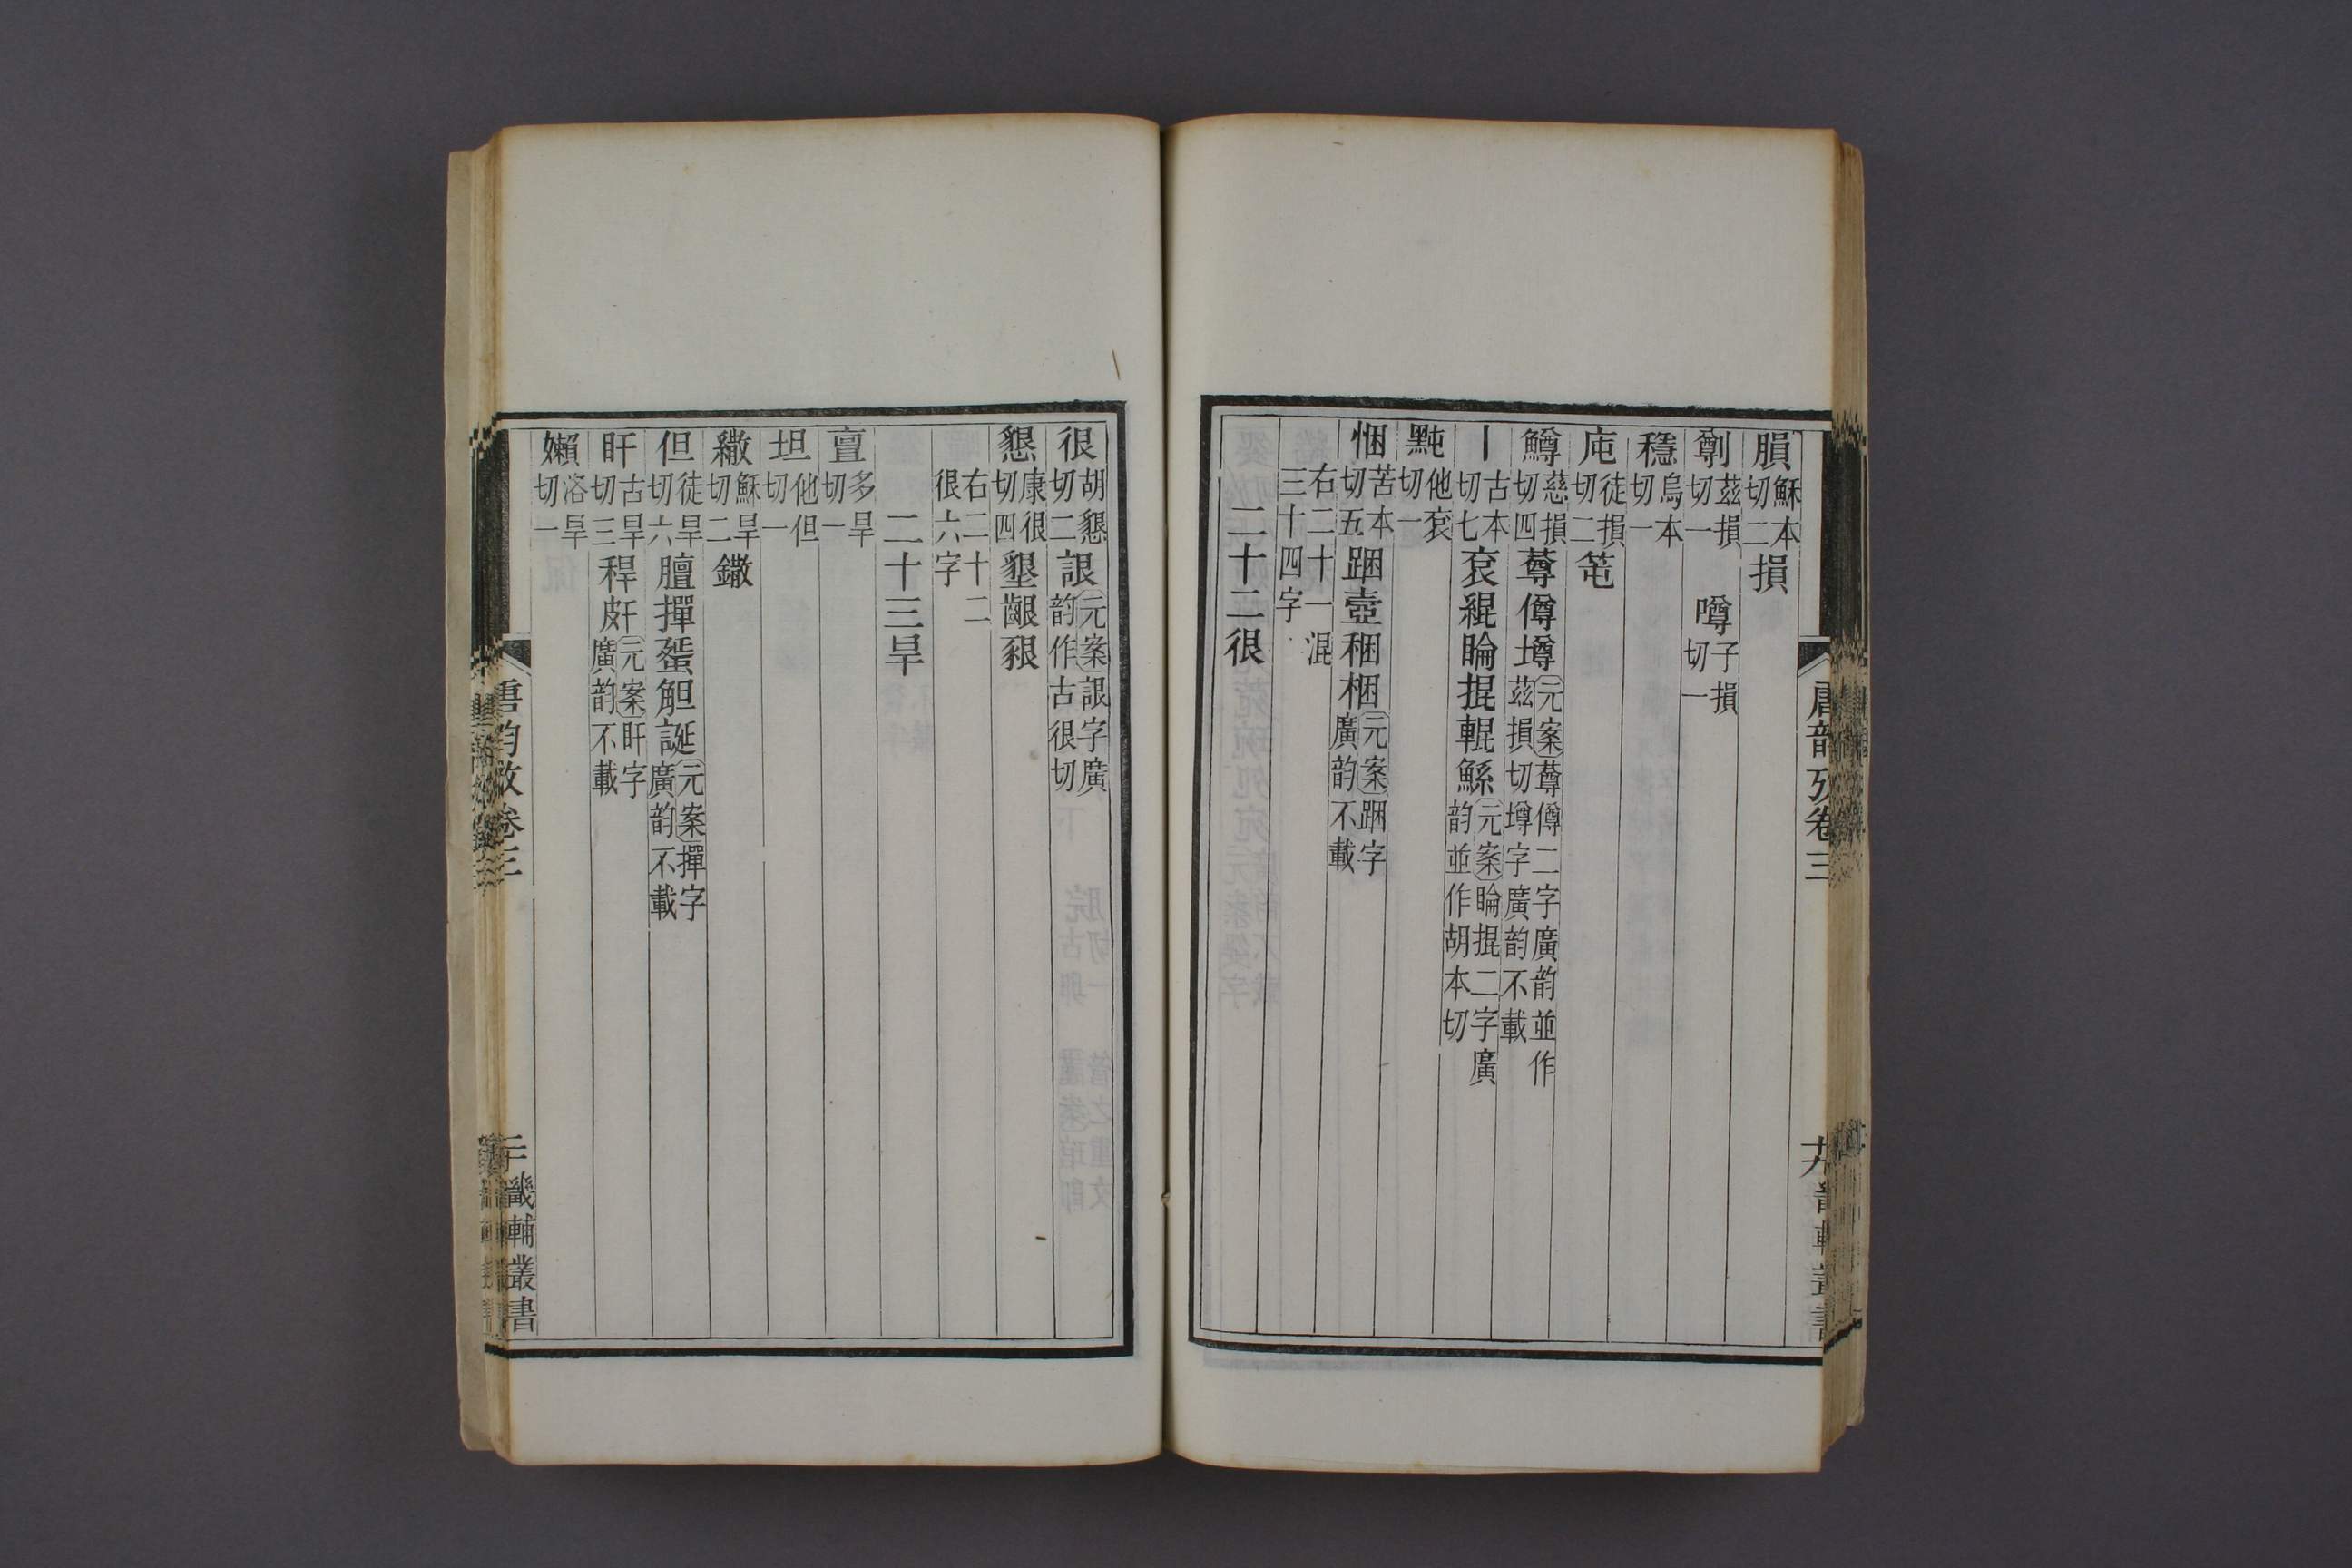 膭穌本切二損
劋茲損切一 噂子損切一
穩烏本切一
庉徒損切二笔
鱒慈損切四蓴僔墫元案蓴僔二字廣韵並作茲損切墫字廣韵不載
丨古本切七衮緄睔掍輥鯀元案睔掍二字廣韵並作胡本切
黗他衮切一
悃苦本切五䠅壼稇梱元案䠅字廣韵不載
右二十一混三十四字
二十二很
唐韵攷卷三
十九
畿輔叢書
很胡懇切二詪元案詪字廣韵作古很切
懇康很切四墾齦豤
右二十二很六字
二十三旱
亶多旱切一
坦他但切一
繖穌旱切二鏾
但徒旱切六膻撣蜑觛誕元案撣字廣韵不載
盰古旱切三稈皯元案盰字廣韵不載
嬾洛旱切一
唐韵攷卷三
二十
畿輔叢書